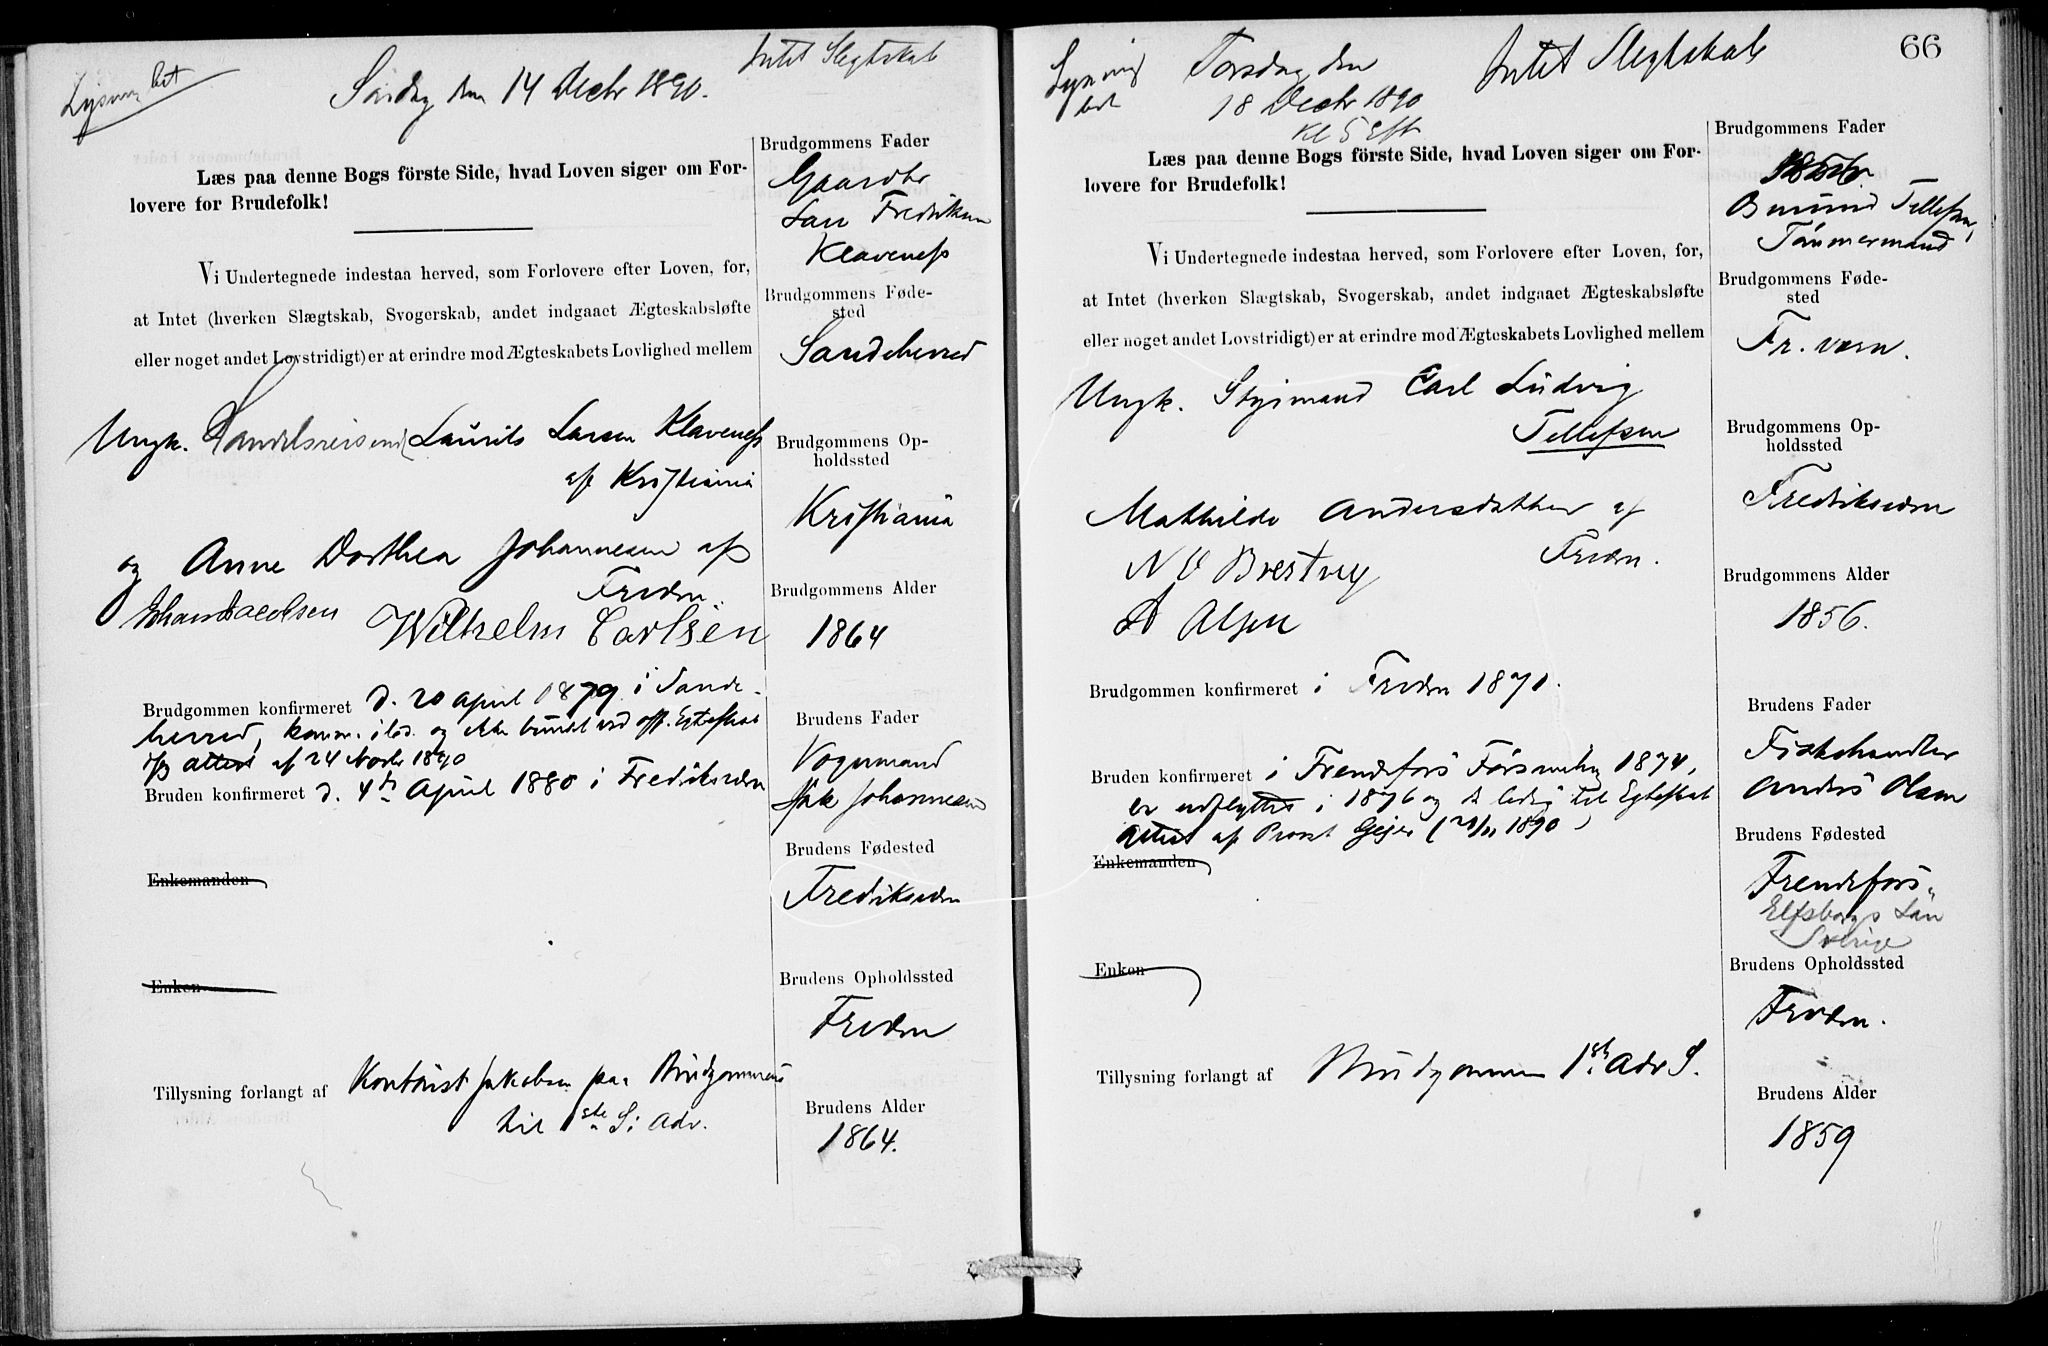 Lysning bet
Søndag den 14 Decbr 1890.
Intet Slegtskab
Læs paa denne Bogs förste Side, hvad Loven siger om For-
lovere for Brudefolk!
Vi Undertegnede indestaa herved, som Forlovere efter Loven, for,
at Intet (hverken Slægtskab, Svogerskab, andet indgaaet Ægteskabsløfte
eller noget andet Lovstridigt) er at erindre mod Ægteskabets Lovlighed mellem
Ungk. Handelsreisende Laurits Larsen Klaveness
af Kristiania
og Anne Dorthea Johannesen af
Frværn.
Wilhelm Carlsen
Brudgommen konfirmeret d. 20 April 1879 i Sande-
herred,
attest af 24 Novbr 1890
Bruden konfirmeret d. 4de April 1880 i Fredriksværn
Enkemanden
Enken
Tillysning forlangt af Kontorist Jakobsen paa Brudgommens
til 1ste S. i Adv.
Brudgommens Fader
Gaardbr
Lars Fredriksen
Klaveness
Brudgommens Føde-
sted
Sandeherred
Brudgommens Op-
holdssted
Kristiania
Brudgommens Alder
1864
Brudens Fader
Vognmand
Jak Johannesen
Brudens Fødested
Fredriksværn
Brudens Opholdssted
Frværn
Brudens Alder
1864.
66
Lysning
bet
Torsdag den
18 Decbr 1890
Kl 5 Eft
Intet Slegtskab
Læs paa denne Bogs förste Side, hvad Loven siger om For-
lovere for Brudefolk!
Vi Undertegnede indestaa herved, som Forlovere efter Loven, for,
at Intet (hverken Slægtskab, Svogerskab, andet indgaaet Ægteskabsløfte
eller noget andet Lovstridigt) er at erindre mod Ægteskabets Lovlighed mellem
Ungk. Styrmand Carl Ludvig
Tellefsen
Mathilde Andersdatter af
Frværn.
N O Brestvig
A Olsen
Brudgommen konfirmeret i Frværn 1871.
Bruden konfirmeret i Frendefors Forsamling 1874,
er udflyttet i 1876 og er ledig til Egteskab
Attest af Provst Geijer (21/11 1890)
Enkemanden
Enken
Tillysning forlangt af Brudgommen 1ste Adv S.
Brudgommens Fader
Tellefsen,
Tømmermand
Brudgommens Føde-
sted
Fr. værn.
Brudgommens Op-
holdssted
Fredriksværn
Brudgommens Alder
1856.
Brudens Fader
Fiskehandler
Anders Olsen
Brudens Fødested
Frendefors
Elfsborgs Län
Sverige
Brudens Opholdssted
Frværn.
Brudens Alder
1859